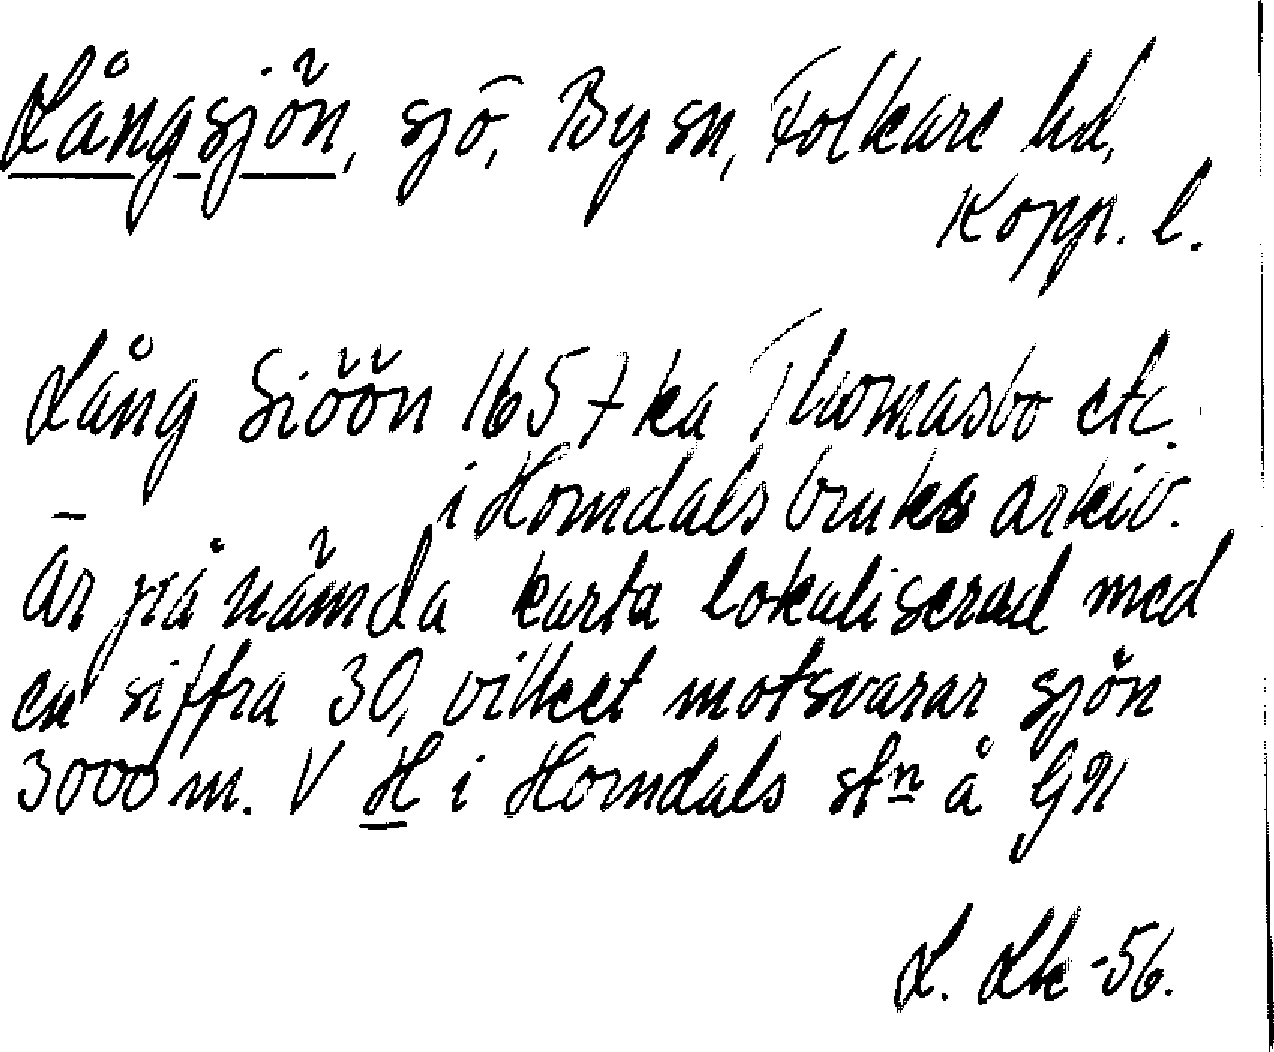 Långsjön, sjö, By sn, Folkare hd,
Kopp. l.
Lång Siöön 1657 ka Thomasbo etc.
i Horndals bruks arkiv.
Är på nämda karta lokaliserad med
en siffra 30, vilket motsvarar sjön
3000 m. V H i Horndals stn å GK
L. Lk -56.